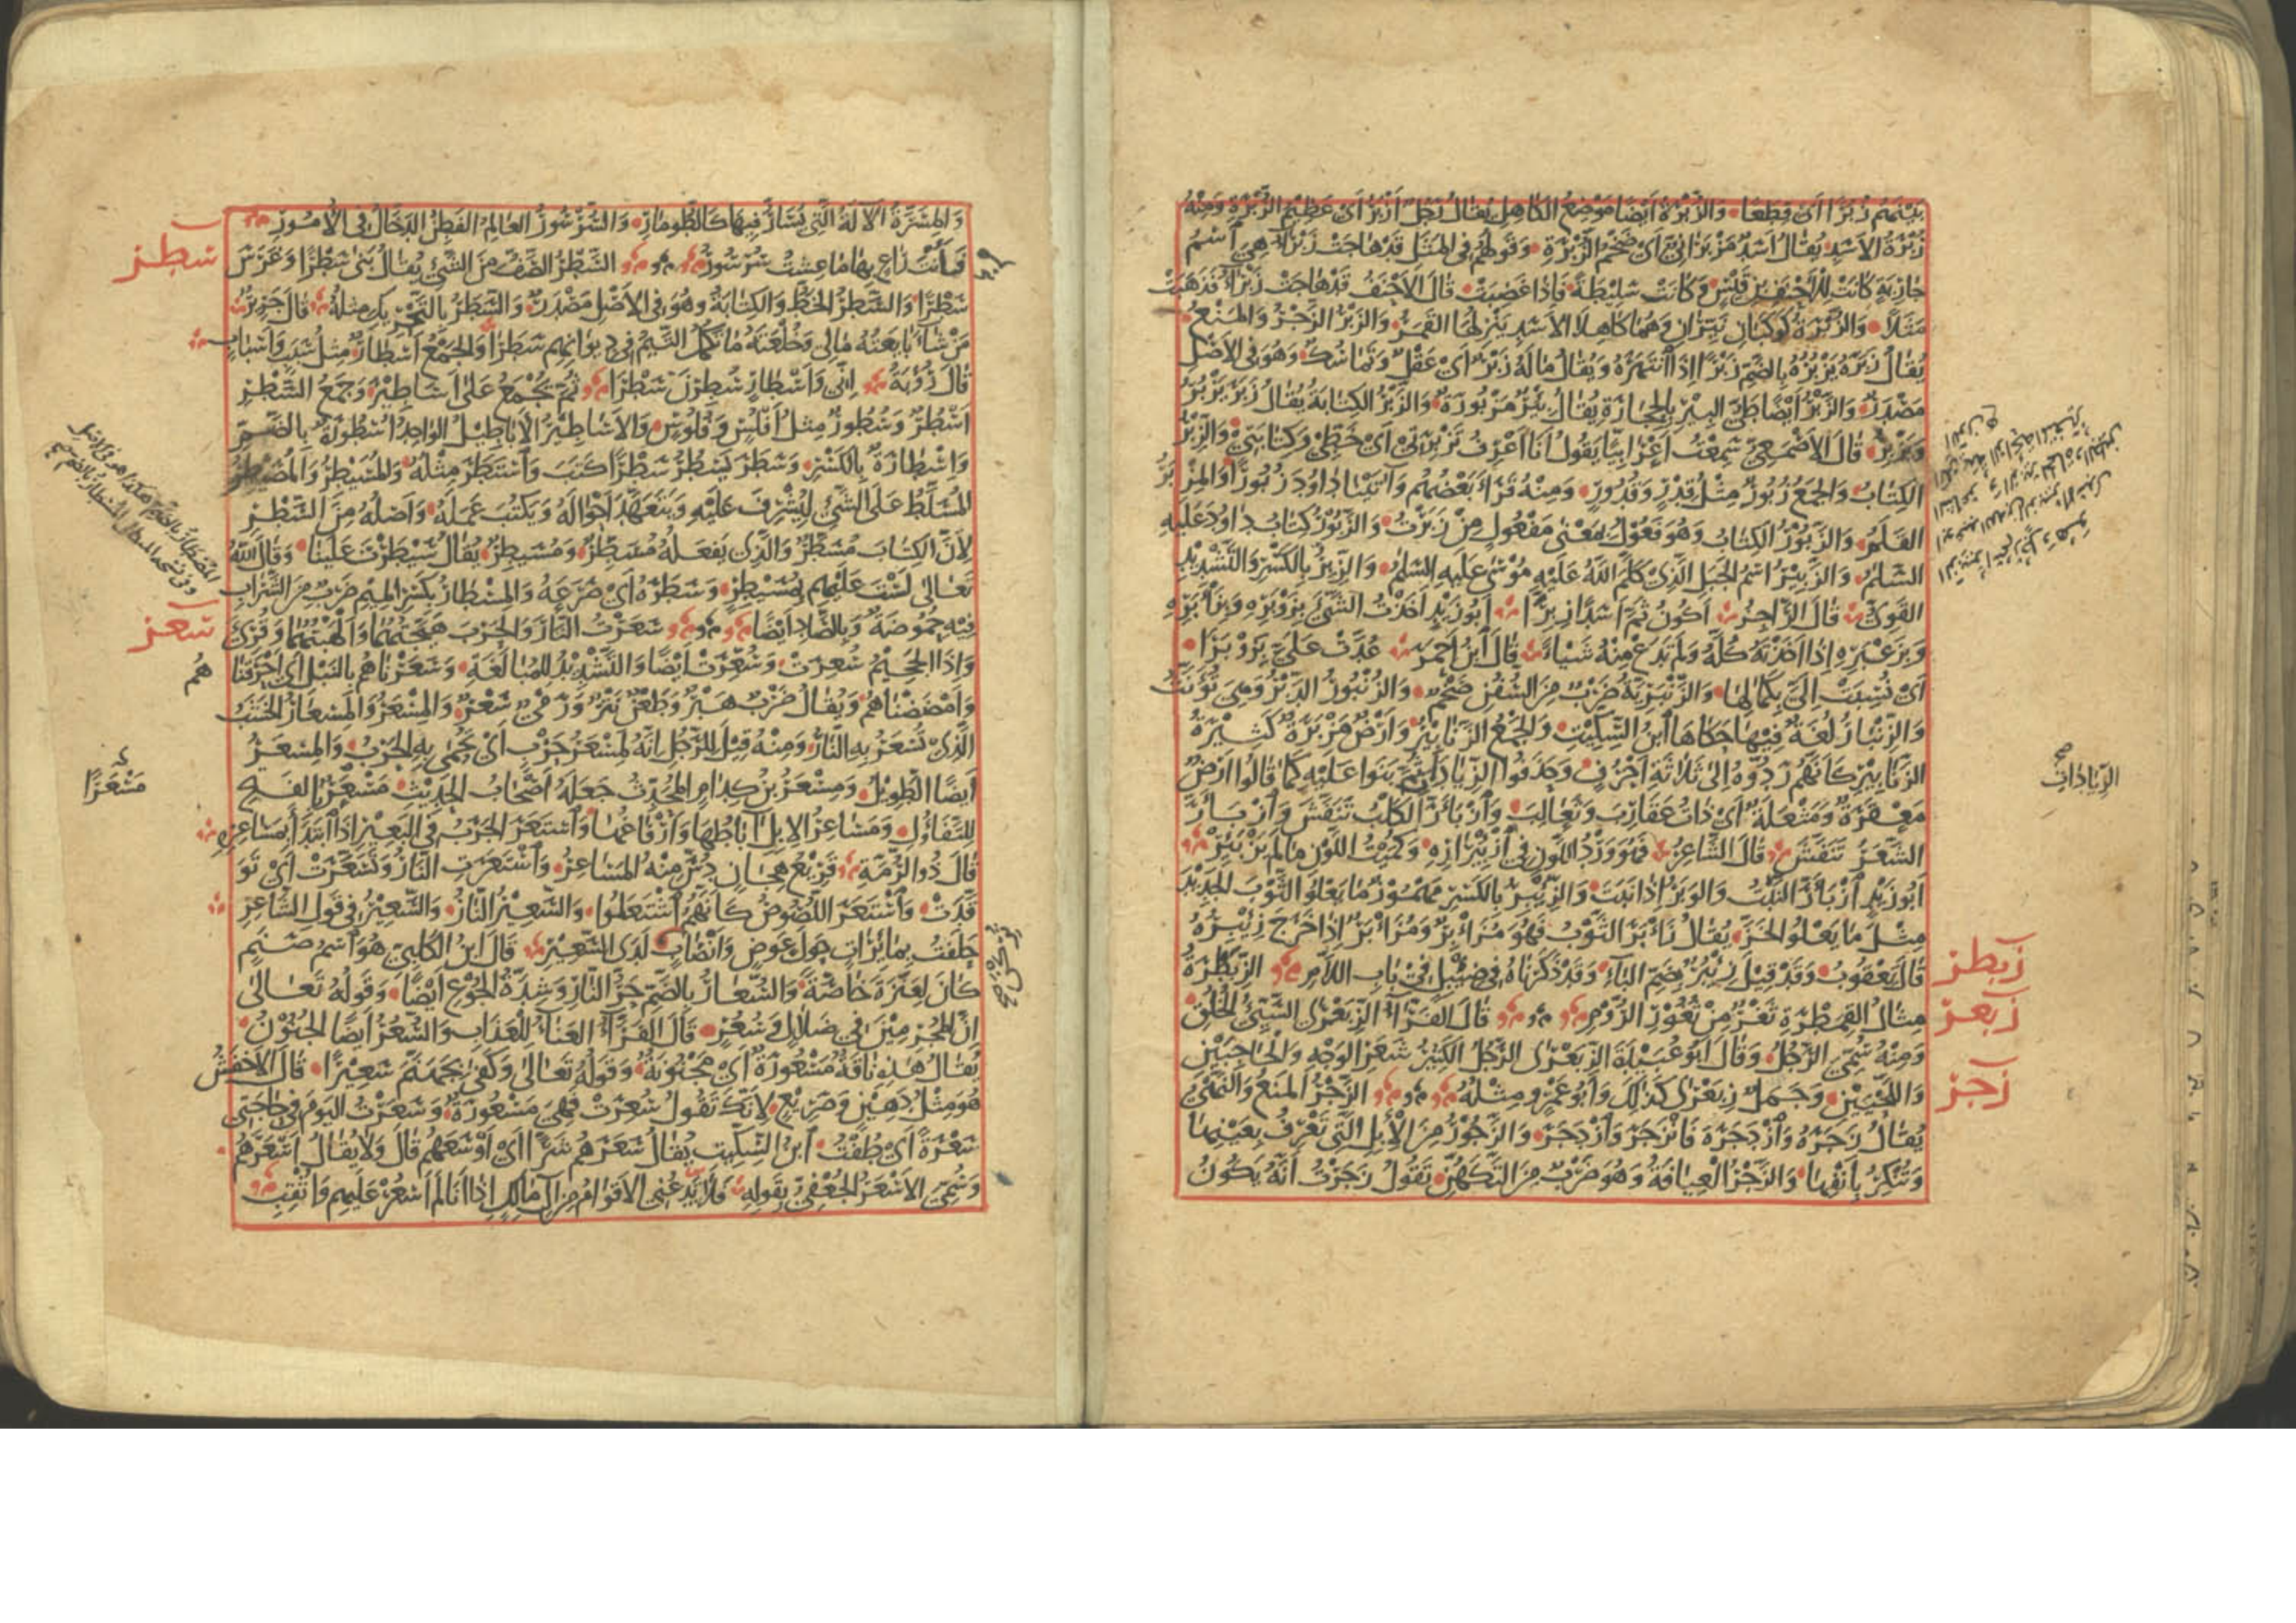 بينهم زُبَرًا اى قطعًا والزُّبرة ايضًا موضع الكاهل يقال رجل ازبر اى عظيم الزبرة ومنه
زبرة الاسد يقال اسد مزبرانى اى ضخم الزبرة وقولهم فى المثل قد هاجت زبراء هى اسم
خادمة كانت للاحنف بن قيس وكانت سليطة فاذا غضبت قال الاحنف قد هاجت زبراء فذهبت
مثلا والزبرة كوكبان نيّران وهما كاهلا الاسد ينزلها القمر والزبر الزجر والمنع
يقال زبره يزبره بالضم زبرا اذا انتهره ويقال ما له زبر اى عقل وتماسك وهو فى الاصل
مصدر والزبر ايضا طىّ البئر بالحجارة يقال بئر مزبورة والزبر الكتابة يقال زبر يزبر
ويزبر قال الاصمعى سمعت اعرابيا يقول انا اعرف تزبرتى اى خطى وكتابتى والزبر
الكتاب والجمع زبور مثل قدر وقدور ومنه قرأ بعضهم وآتينا داود زبورا والمزبر
القلم والزبور الكتاب وهو فعول بمعنى مفعول من زبرت والزبور كتاب داود عليه
السلم والزبير اسم الجبل الذى كلم الله عليه موسى عليه السلم والزبر بالكسر والتشديد
القوى قال الراجز اكون ثم اسدا زبرا ابو زيد اخذت الشئ بزوبره وبزأبره
وبزغبره اذا اخذته كله ولم تدع منه شيأ قال ابن احمر عدّت علىّ بزوبرا
اى نسبت الىّ بكمالها والزنبرية ضرب من السفن ضخم والزنبور الدبر وهى تؤنث
والزنبار لغة فيها حكاها ابن السكيت والجمع الزنابير وارض مزبرة كثيرة
الزنابير كانهم ردوه الى ثلاثة احرف وحذفوا الزيادات ثم بنوا عليه كما قالوا ارض
معقرة ومثعلة اى ذات عقارب وثعالب وازبأر الكلب تنفش وازبأر
الشعر تنفش قال الشاعر فهو ورد اللون فى ازبئراره وكميت اللون ما لم يزبئر
ابو زيد ازبأر النبت والوبر اذا نبت والزئبر بالكسر مهموز ما يعلو الثوب الجديد
مثل ما يعلو الخز يقال زأبر الثوب فهو مزأبر ومزأبر اذا خرج زئبره
قال يعقوب وقد قيل زئبر بضم الباء وقد ذكرناه فى ضئبل فى باب اللام الزبطرة
زبطر
مثال القمطرة ثغر من ثغور الروم قال الفراء الزبعرى السيئ الخلق
زبعر
ومنه سمى الرجل وقال ابو عبيدة الزبعرى الرجل الكثير شعر الوجه والحاجبين
واللحيين وجمل زبعرى كذلك وابو عمرو مثله الزجر المنع والنهى
زجر
يقال زجره وازدجره فانزجر وازدجر والزجور من الابل التى تعرف بعينها
وتنكر بانفها والزجر العيافة وهو ضرب من التكهن تقول زجرت انه يكون
الزيادات
صح
والمسبرة الآلة التى يسار فيها كالطومار
شطز
سطرا والسطر الخط والكتابة وهو فى الاصل مصدر والسطر بالتحريك مثله قال جرير
من شاء بايعته مالى وخلعته ما تكمل التيم فى ديوانهم سطرا والجمع اسطار مثل سبب واسباب
قال رؤبة انى واسطار سطرن سطرا ثم يجمع على اساطير وجمع السطر
اسطر وسطور مثل افلس وفلوس والاساطير الاباطيل الواحد اسطورة بالضم
واسطارة بالكسر وسطر يسطر سطرا كتب واستطر مثله والمسيطر والمصيطر
المسلط على الشئ ليشرف عليه ويتعهد احواله ويكتب عمله واصله من السطر
لان الكتاب مسطر والذى يفعله مسطر ومسيطر يقال سيطرت علينا وقال الله
تعالى لست عليهم بمسيطر وسطره اى صرعه والمسطار بكسر الميم ضرب من الشراب
فيه حموضة وبالصاد ايضا سعرت النار والحرب هيجتهما والهبتهما وقرئ
سعر
واذا الجحيم سعرت وسعرت ايضا والتشديد للمبالغة وسعرناهم بالنبل اى احرقناهم
وامضضناهم ويقال ضرب هبر وطعن نتر ورمى سعر والمسعر والمسعار الخشب
الذى تسعر به النار ومنه قيل للرجل انه لمسعر حرب اى تحمى به الحرب والمسعر
ايضا الطويل ومسعر بن كدام المحدث جعله اصحاب الحديث مسعر بالفتح
مسعرا
للتفاؤل ومساعر الابل آباطها وارفاغها واستعر الجرب فى البعير اذا ابتدأ بمساعره
قال ذو الرمة قريع هجان دس منه المساعر واستعرت النار وتسعرت اى تو
قدت واستعر اللصوص كانهم اشتعلوا والسعير النار والسعير فى قول الشاعر
حلفت بمائرات حول عوض وانصاب لدى السعير قال ابن الكلبى هو اسم صنم
كان لعنزة خاصة والسعار بالضم حر النار وشدة الجوع ايضا وقوله تعالى
ان المجرمين فى ضلال وسعر قال الفراء العناء للعذاب والسعر ايضا الجنون
يقال هذه ناقة مسعورة اى مجنونة وقوله تعالى وكفى بجهنم سعيرا قال الاخفش
هو مثل دهين وصريع لانك تقول سعرت فهى مسعورة وسعرت اليوم فى حاجتى
سعرة اى طفت ابن السكيت يقال سعرهم شرا اى اوسعهم قال ولا يقال اسعرهم
وسمى الاسعر الجعفى بقوله فلا يدعنى الاقوام من آل مالك اذا انا لم اسعر عليهم واثقب